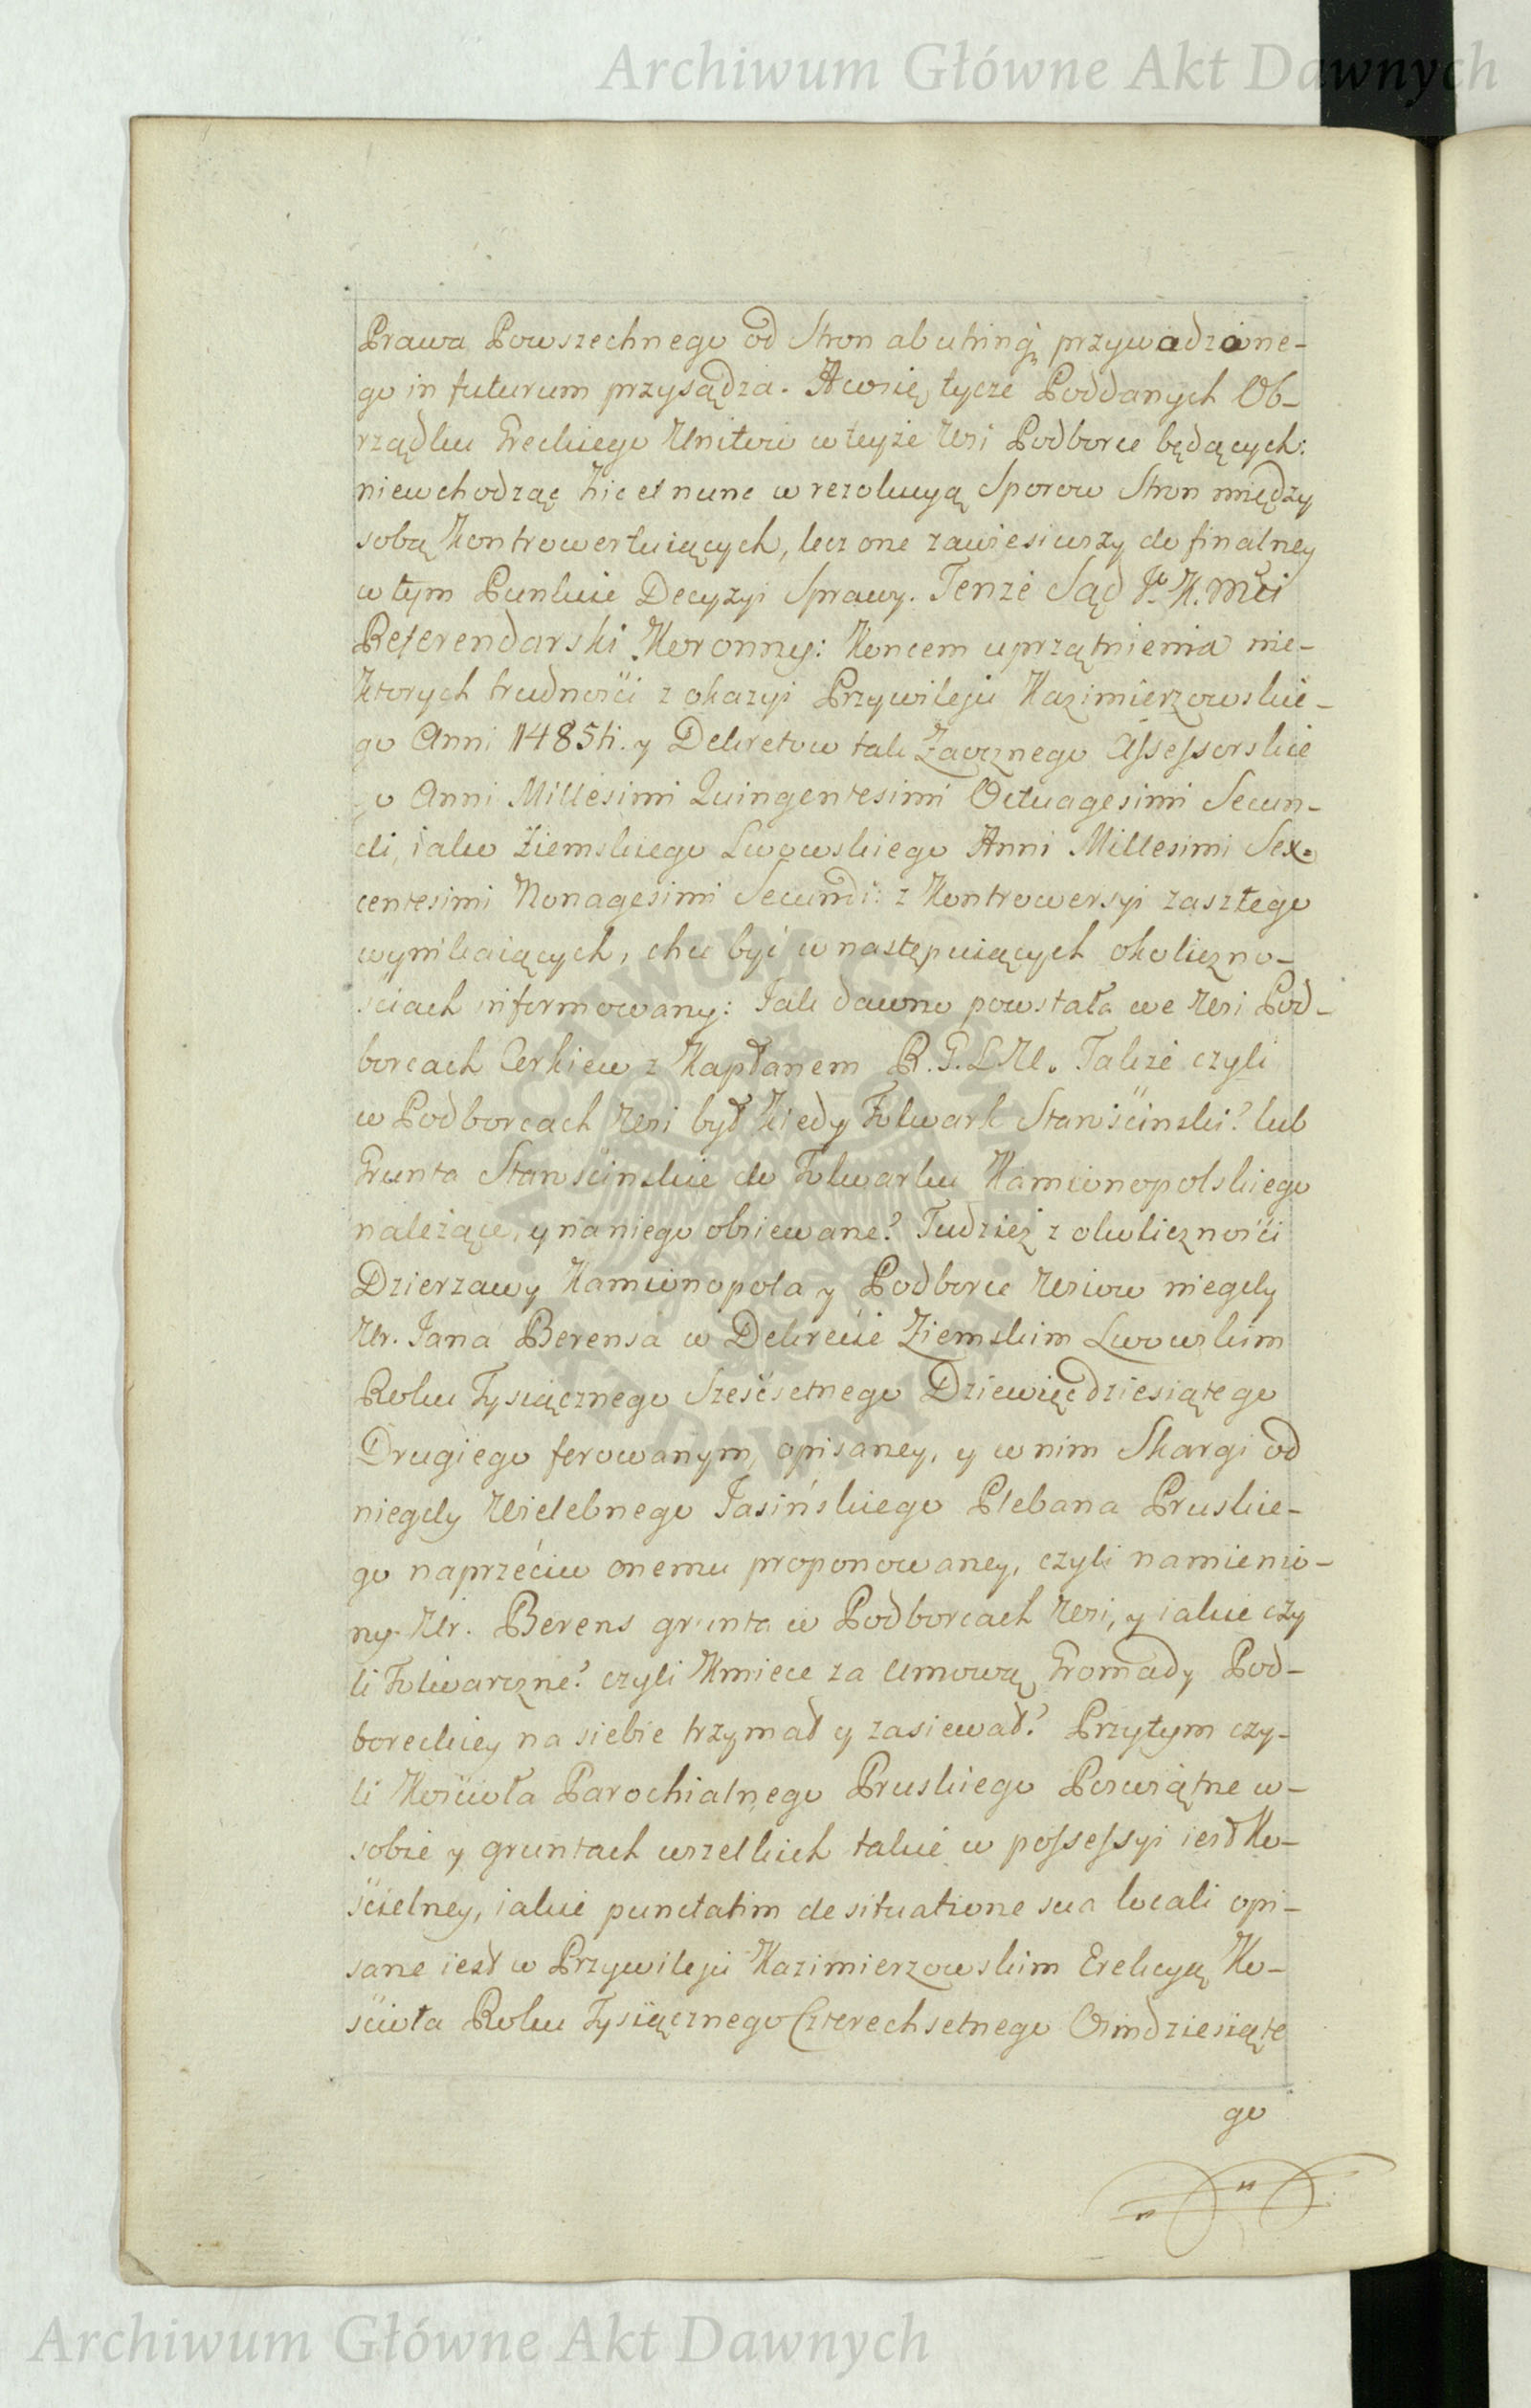 Archiwum Główne Akt Dawnych
Prawa Powszechnego od Stron ab utrinq; przywiedzione-
go in futurum przysądza. A co się tycze Poddanych Ob-
rządku Greckiego Unitow w teyże Wsi Podborce będących:
niewchodząc hic et nunc w rezolucyą Sporow Stron między
sobą Kontrowertuiących, lecz one zawiesiwszy do finalney
w tym Punkcie Decyzyi Sprawy. Tenże Sąd J. K. Mci
Referendarski Koronny: Koncem uprzątnienia nie-
ktorych trudności z okazyi Przywileju Kazimierzowskie-
go Anni 1485ti. y Dekretow tak Zaocznego Assessorskie
go Anni Millesimi Quingentesimi Octuagesimi Secun-
di, iako Ziemskiego Lwowskiego Anni Millesimi Sex-
centesimi Nonagesimi Secundi: z Kontrowersyi zaszłego
wynikaiących, chce być w następuiących okoliczno-
ściach informowany: Jak dawno powstała we Wsi Pod-
borcach Cerkiew z Kapłanem R. G. L. U. Także czyli
w Podborcach Wsi był kiedy Folwark Starościnski? lub
Grunta Starościnskie do Folwarku Kamionopolskiego
należące, y na niego obsiewane? Tudzież z okoliczności
Dzierzawy Kamionopola y Podborce Wsiow niegdy
Ur. Jana Berensa w Dekrecie Ziemskim Lwowskim
Roku Tysiącznego Sześćsetnego Dziewięćdziesiątego
Drugiego ferowanym, opisaney, y w nim Skargi od
niegdy Wielebnego Jasińskiego Plebana Pruskie-
go naprzećiw onemu proponowaney, czyli namienio-
ny Ur. Berens grunta w Podborcach Wsi, y iakie czy
li Folwarczne? czyli Kmiece za Umową Gromady Pod-
boreckiey na siebie trzymał y zasiewał? Przytym czy-
li Kościoła Parochialnego Pruskiego Poswiątne w-
sobie y gruntach wszelkich takie w possessyi iest Ko-
ścielney, iakie punctatim de situatione sua locali opi-
sane iest w Przywileju Kazimierzowskim Erekcyą Ko-
ścioła Roku Tysiącznego Czterechsetnego Osmdziesiąte
go
Archiwum Główne Akt Dawnych